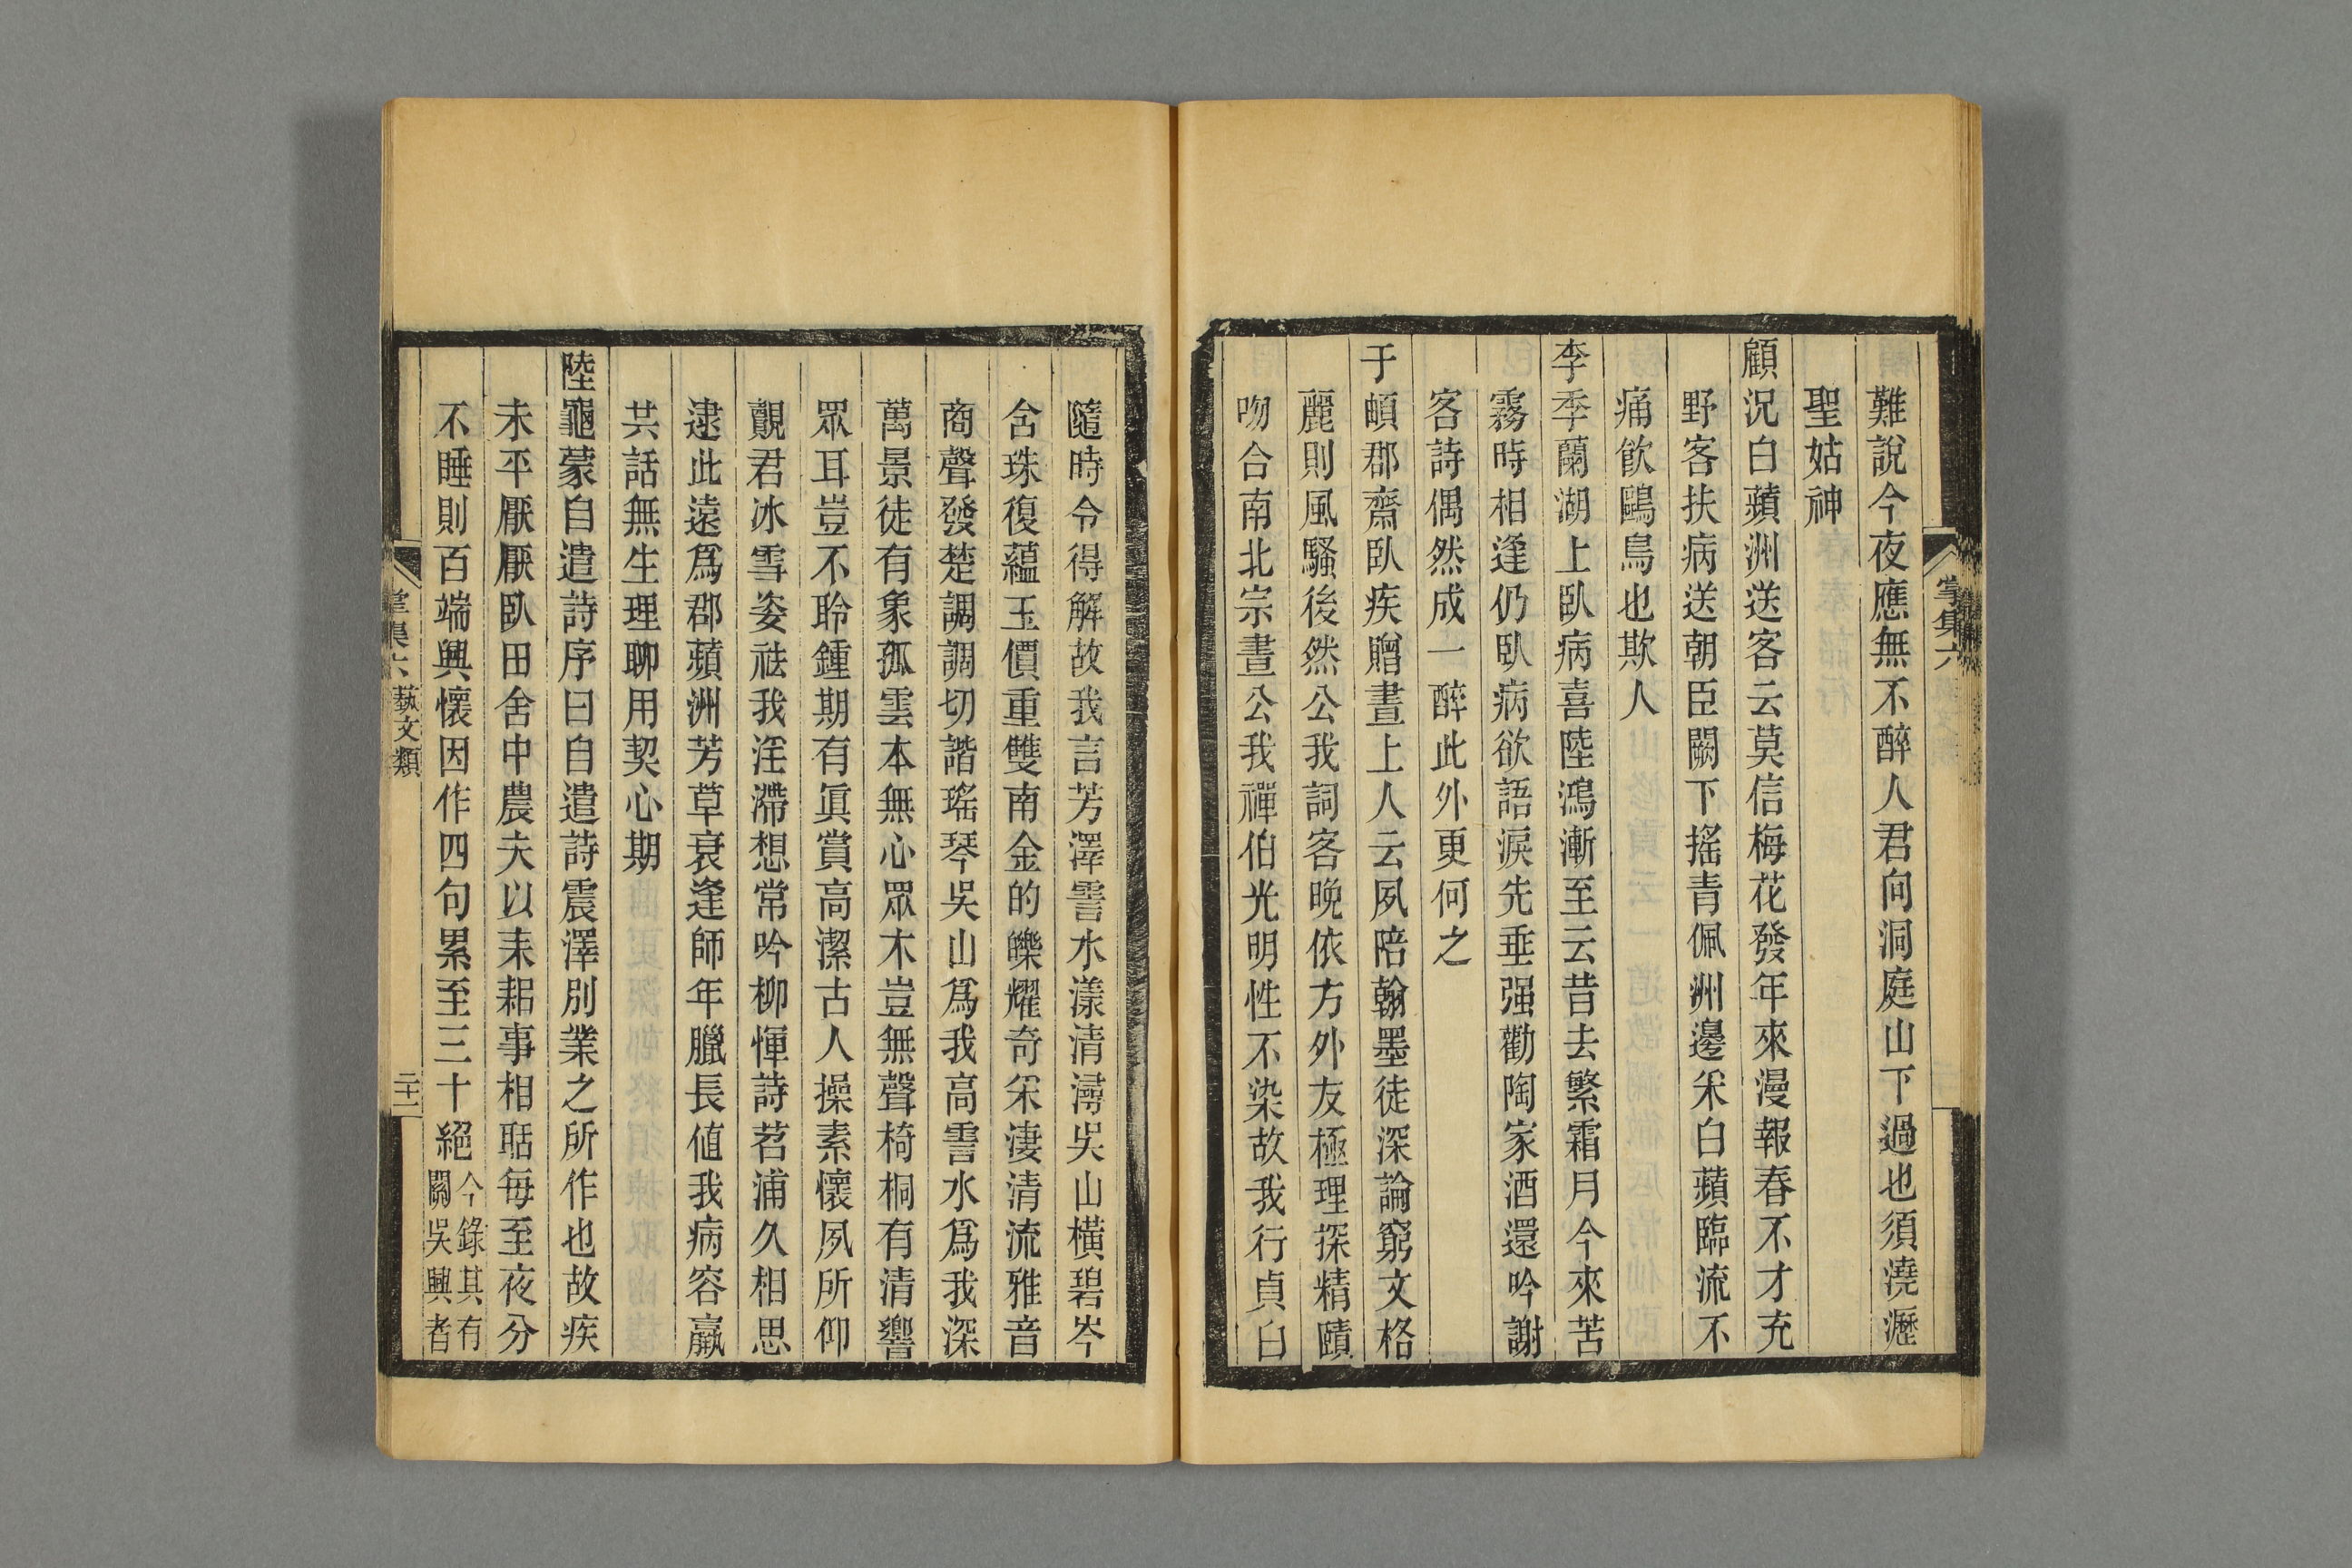 難說今夜應無不醉人君向洞庭山下過也須澆瀝
聖姑神
顧況白蘋洲送客云莫信梅花發年來漫報春不才充
野客扶病送朝臣闕下搖青佩洲邊采白蘋臨流不
痛飲鷗鳥也欺人
李季蘭湖上臥病喜陸鴻漸至云昔去繁霜月今來苦
霧時相逢仍臥病欲語淚先垂强勸陶家酒還吟謝
客詩偶然成一醉此外更何之
于頔郡齋臥疾贈晝上人云夙陪翰墨徒深論窮文格
麗則風騷後然公我詞客晚依方外友極理探精賾
吻合南北宗晝公我禪伯光明性不染故我行貞白
掌集六
隨時令得解故我言芳澤霅水漾清潯吳山橫碧岑
含珠復蘊玉價重雙南金的皪耀奇采淒清流雅音
商聲發楚調調切諧瑤琴吳山爲我高霅水爲我深
萬景徒有象孤雲本無心眾木豈無聲椅桐有清響
眾耳豈不聆鍾期有眞賞高潔古人操素懷夙所仰
覿君冰雪姿祛我淫滯想常吟柳惲詩苕浦久相思
逮此遠爲郡蘋洲芳草衰逢師年臘長値我病容羸
共話無生理聊用契心期
陸龜蒙自遣詩序曰自遣詩震澤別業之所作也故疾
未平厭厭臥田舍中農夫以耒耜事相聒每至夜分
不睡則百端興懷因作四句累至三十絕今錄其有
關吳興者
掌集六 藝文類 二十一